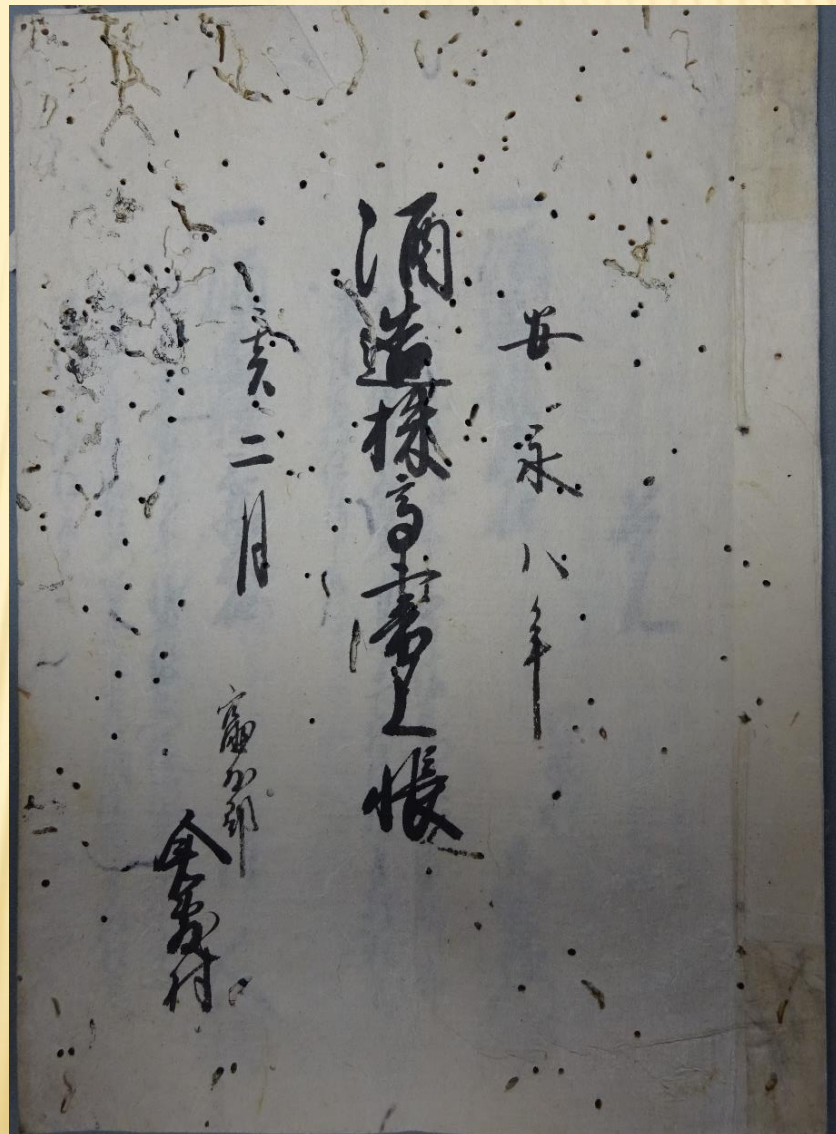 安永八年
酒造株高書上帳
亥二月
郡
村